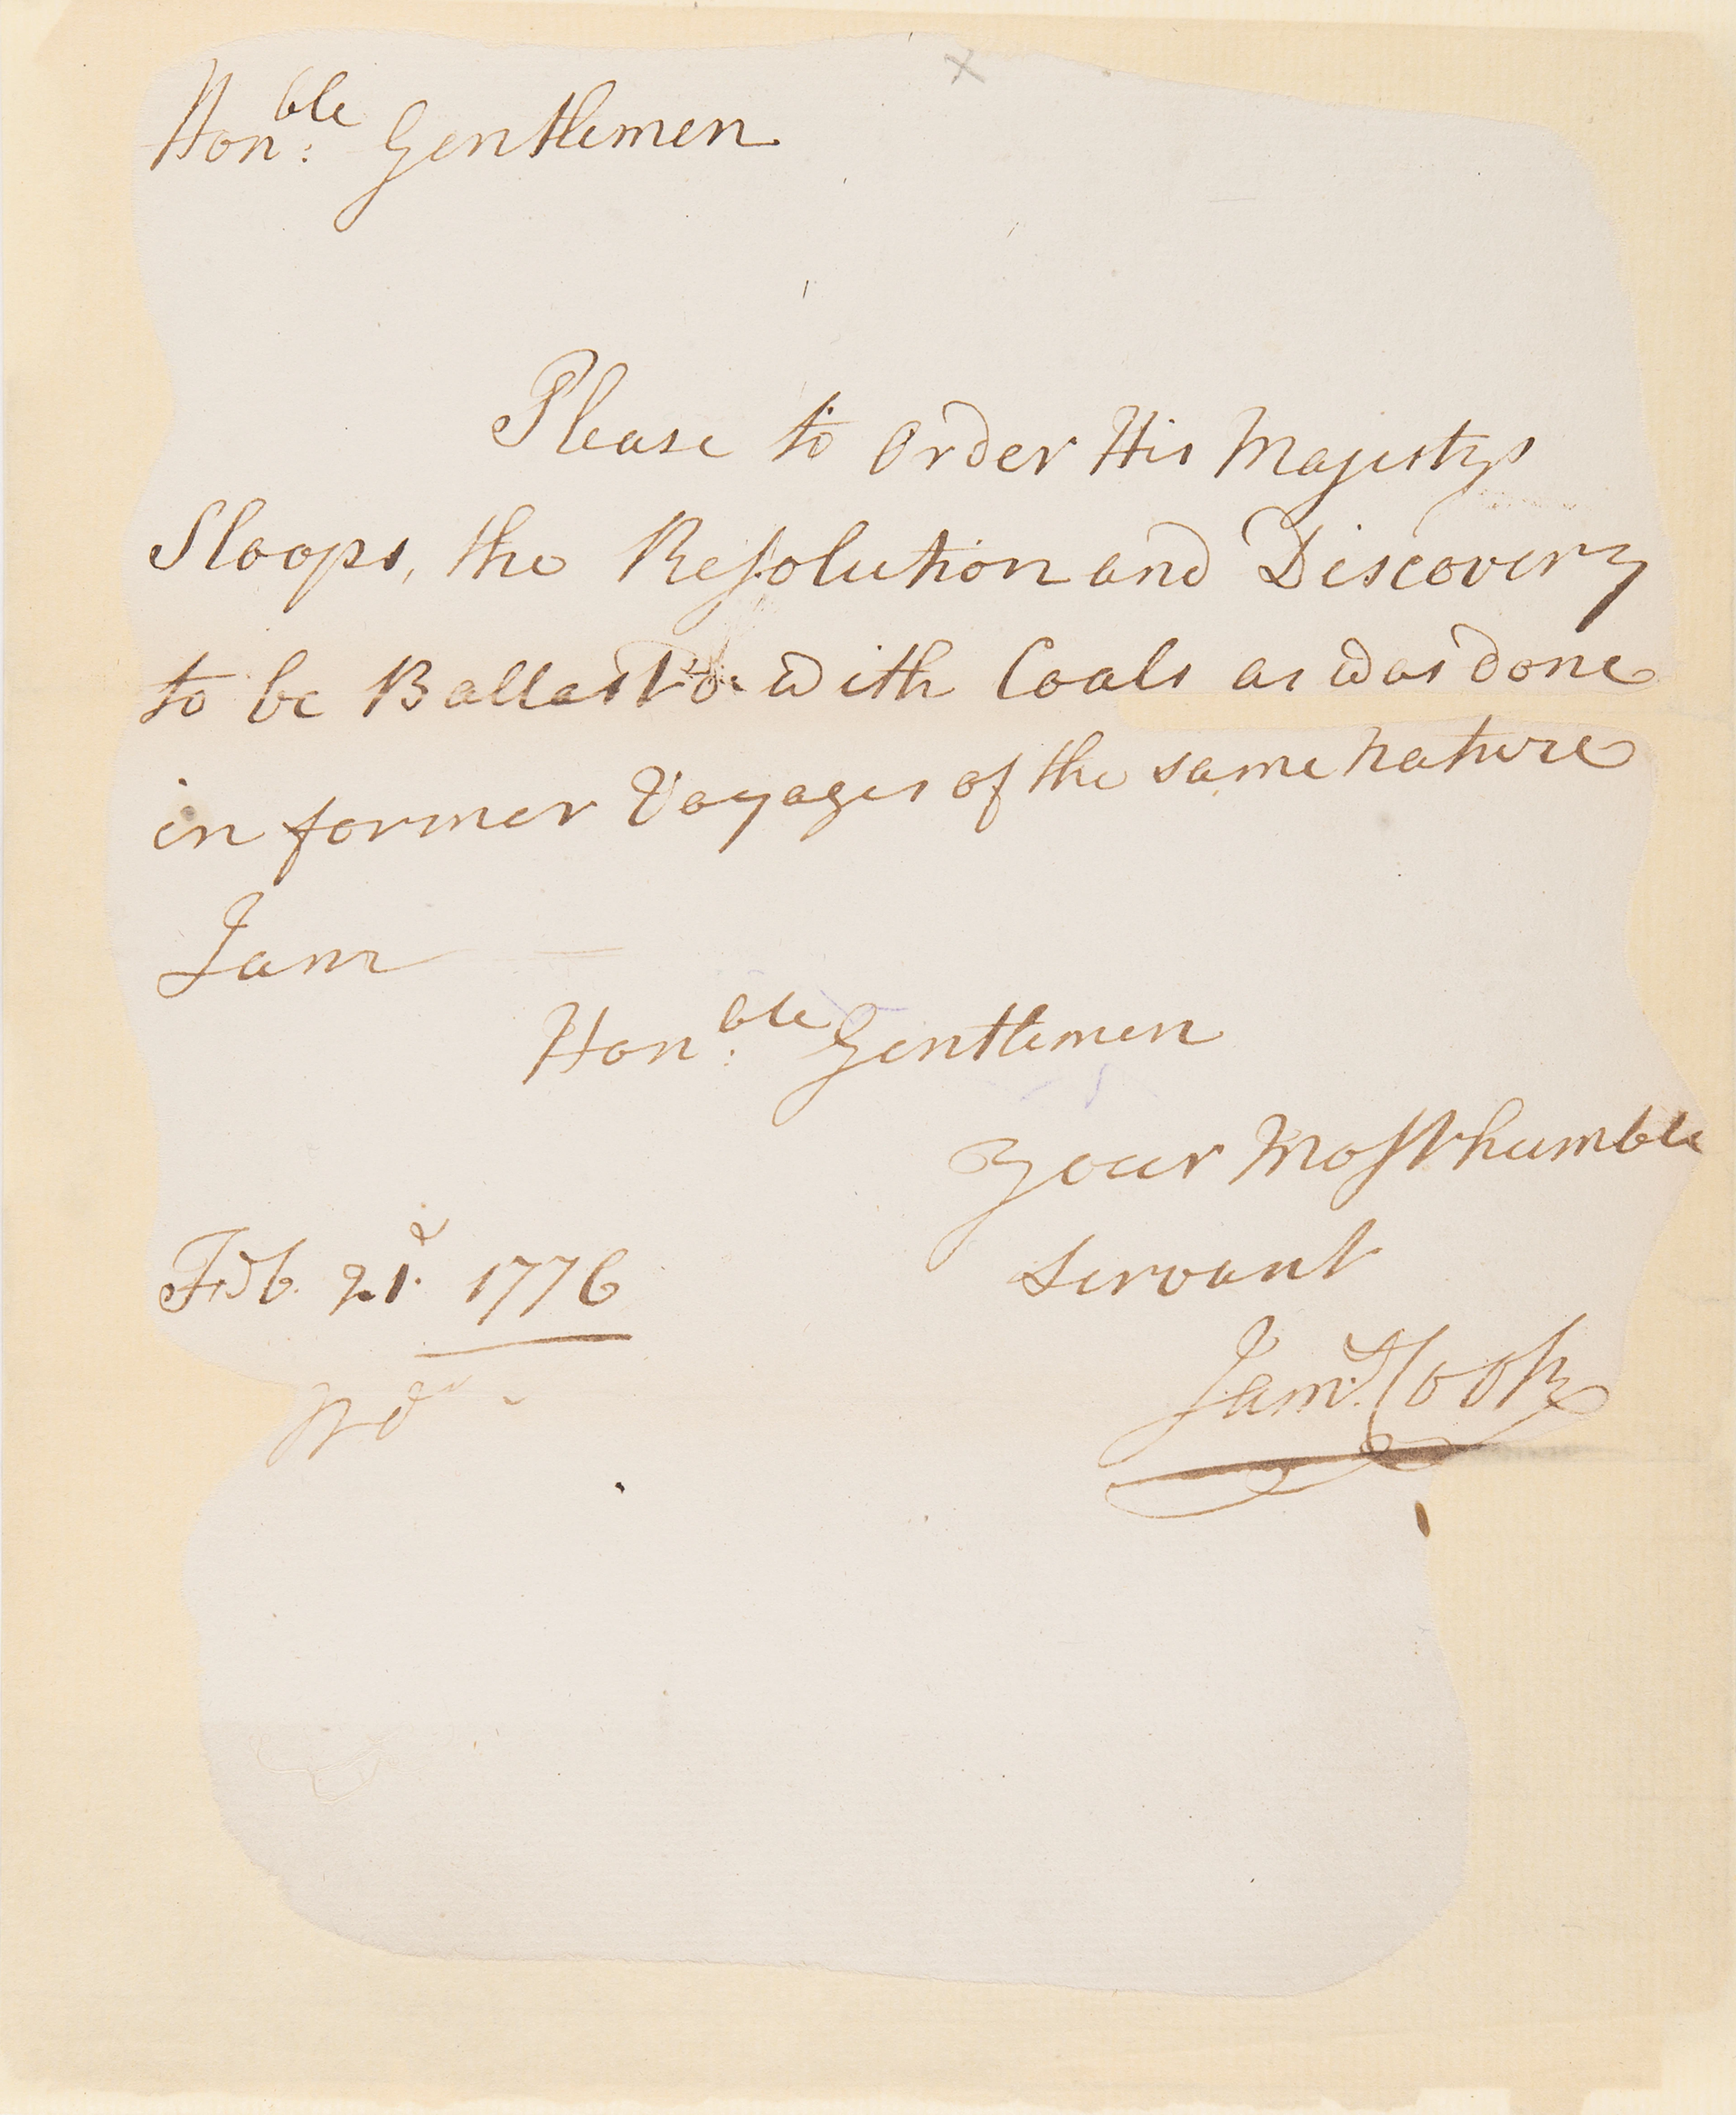 Hon:ble Gentlemen
Please to Order His Majestys
Sloops, the Reſolution and Discovery
to be Ballast'd: with Coals as was done
in former Voyages of the same nature
I am
Hon:ble Gentlemen
Your Moſt humble
Servant
Feb. 21. 1776
Jam.s Cook